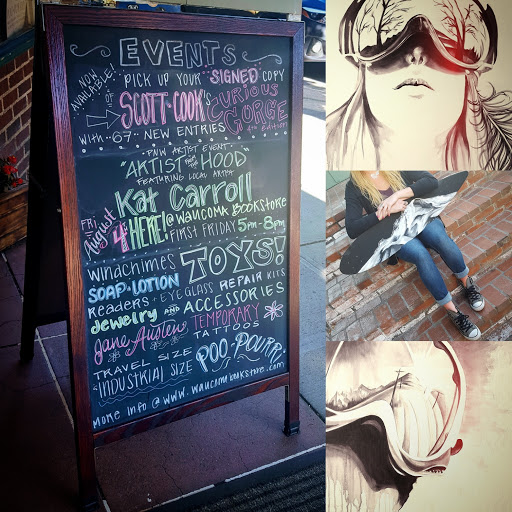 EVENTS
NOW AVAILABLE!
PICK UP YOUR SIGNED COPY
SCOTT COOK's CURIOUS GORGE
4th EDITION
WITH ·67· NEW ENTRIES
PNW ARTIST EVENT
"ARTIST FROM THE HOOD"
FEATURING LOCAL ARTIST
Kat Carroll
FRI August 4 HERE! @ WAUCOMA BOOKSTORE
FIRST FRIDAY 5pm-8pm
WINDCHIMES TOYS!
SOAP & LOTION
READERS + EYEGLASS REPAIR KITS
Jewelry AND ACCESSORIES
Jane Austen TEMPORARY TATTOOS
TRAVEL SIZE
"INDUSTRIAL SIZE POO-POURRI
MORE INFO @ WWW.WAUCOMABOOKSTORE.COM